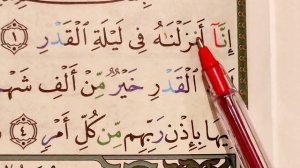 إِنَّآ أَنزَلْنَـٰهُ فِى لَيْلَةِ ٱلْقَدْرِ ١
ٱلْقَدْرِ خَيْرٌ مِّنْ أَلْفِ
فِيهَا بِإِذْنِ رَبِّهِم مِّن كُلِّ أَمْرٍ ٤